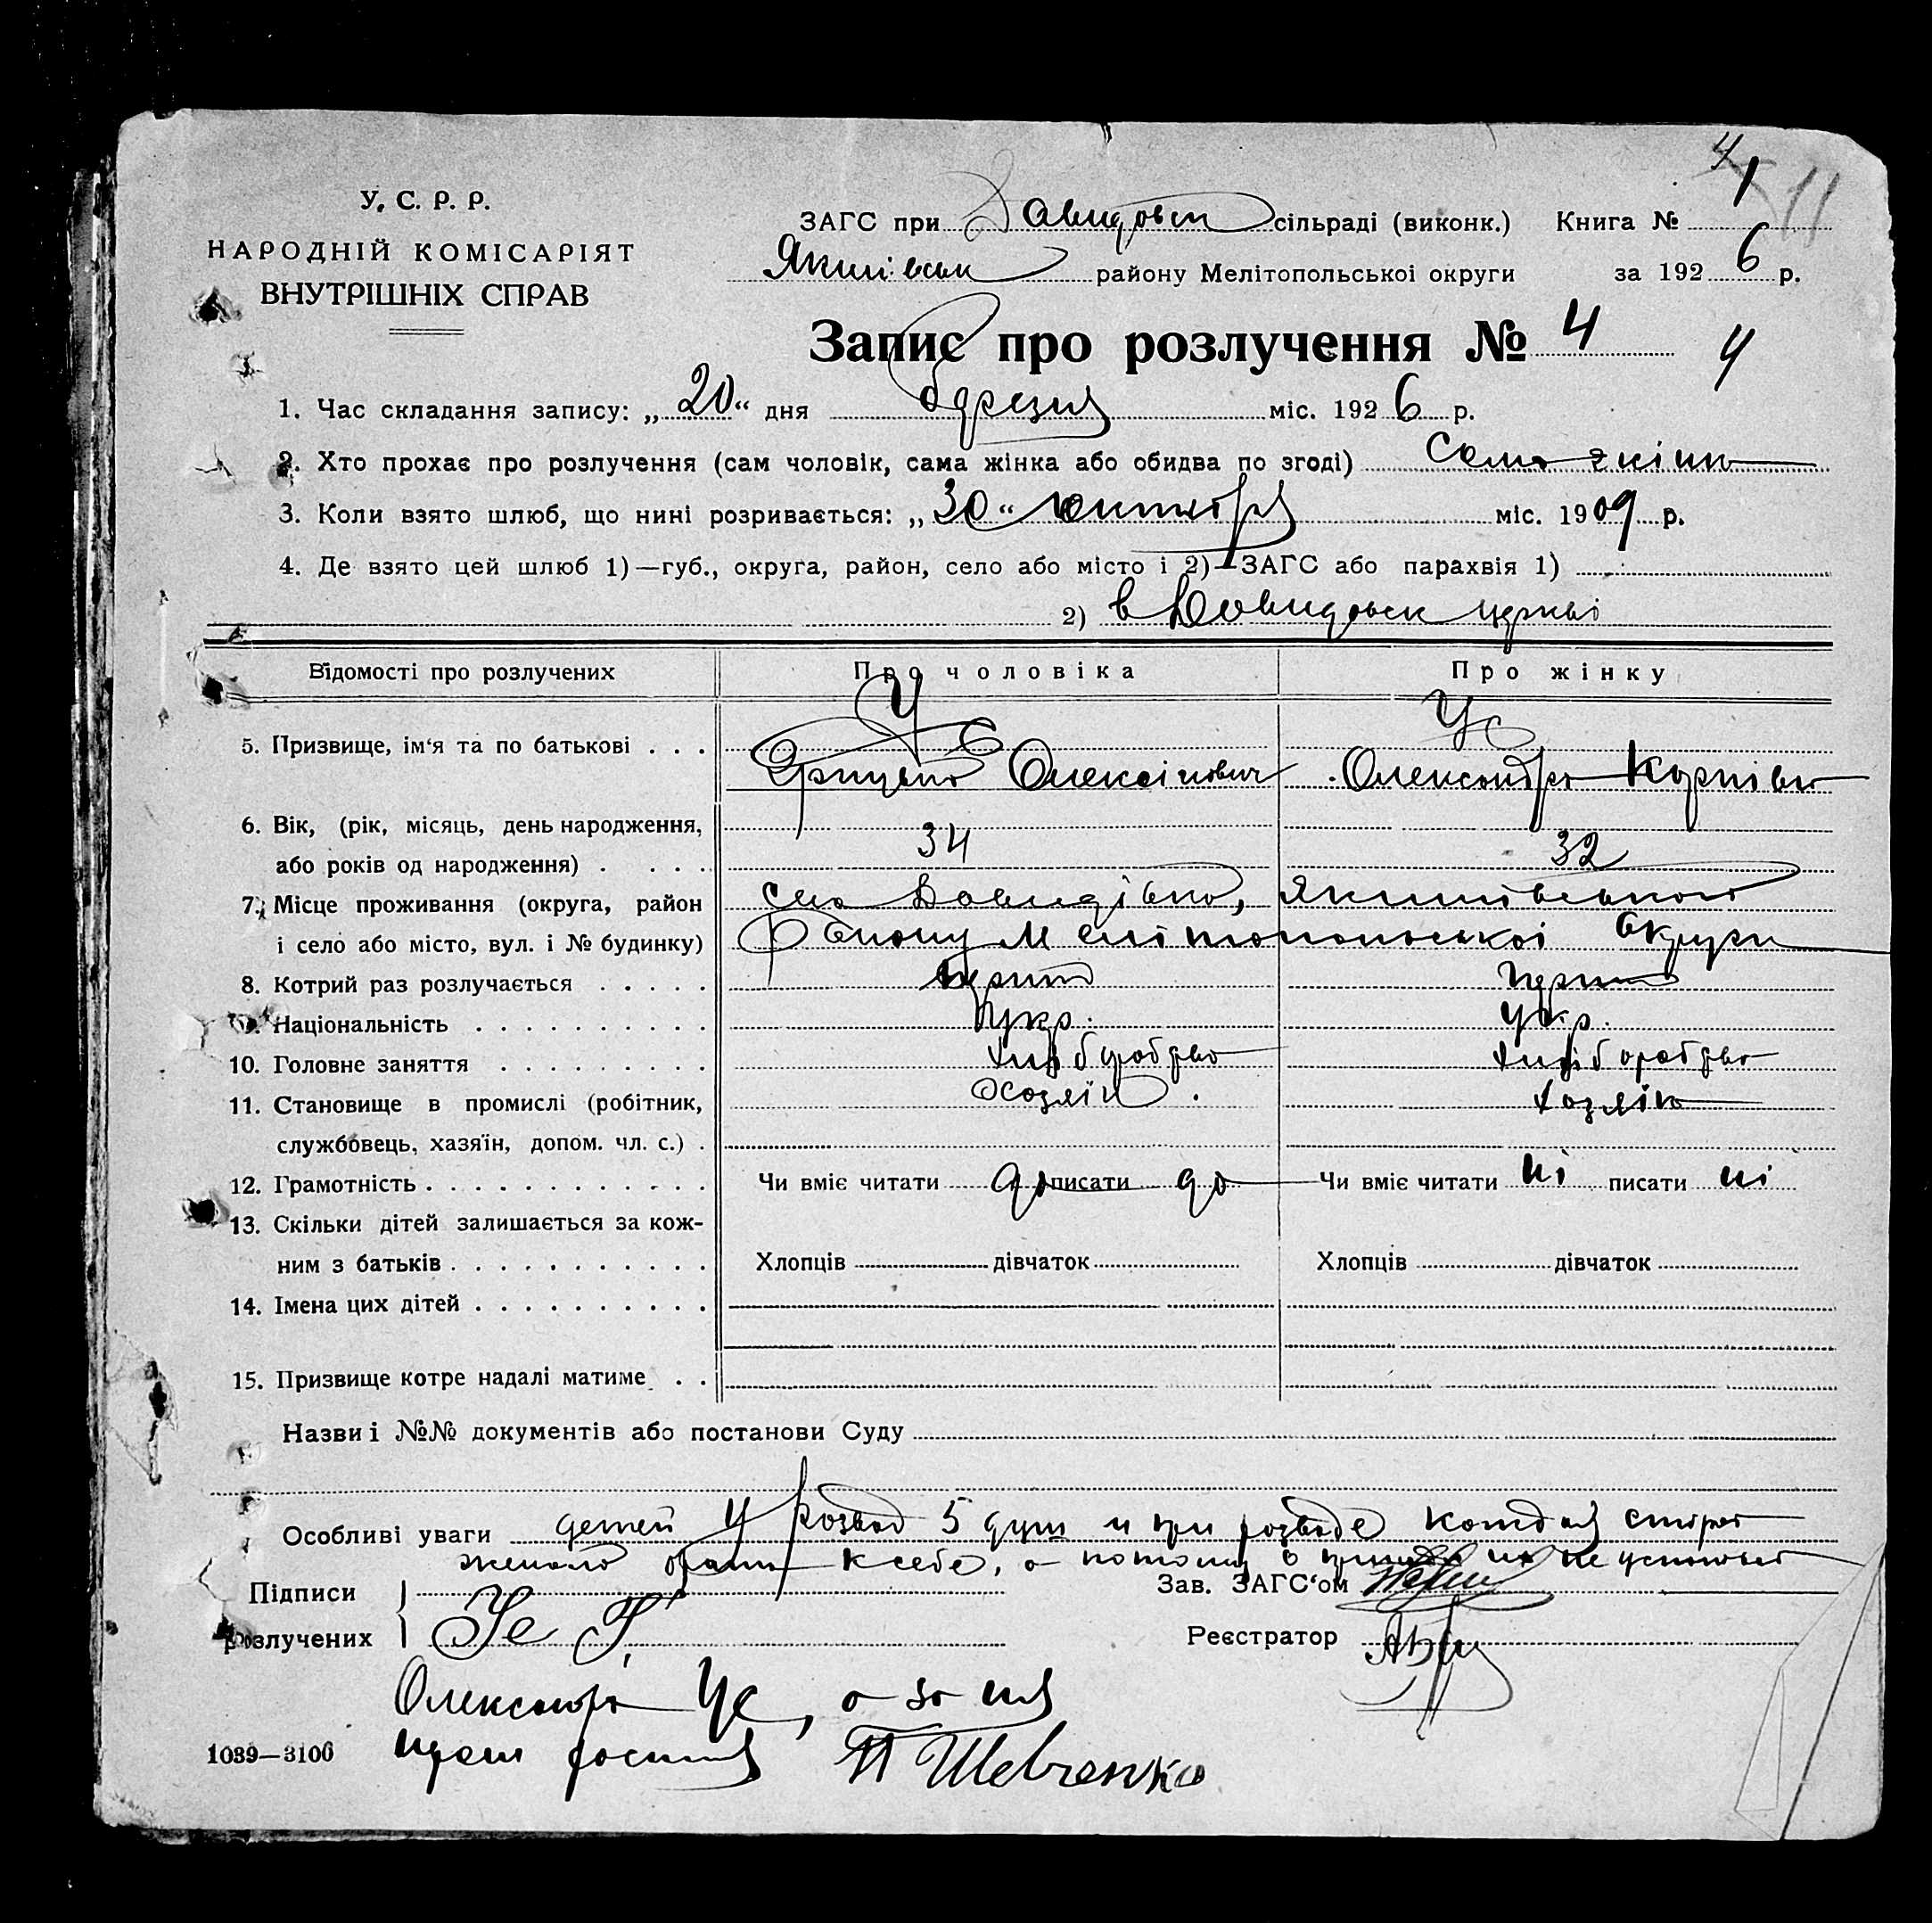 4 1 11
У. С. Р. Р.
НАРОДНІЙ КОМІСАРІЯТ
ВНУТРІШНІХ СПРАВ
ЗАГС при Давидовск сільраді (виконк.) Книга №
Якимівськ району Мелітопольскоі округи за 1926 р.
Запис про розлучення № 4 4
1. Час складання запису: „20“ дня березня міс. 1926 р.
2. Хто прохає про розлучення (сам чоловік, сама жінка або обидва по згоді) Сама жінка
3. Коли взято шлюб, що нині розривається: „30“ октября міс. 1909 р.
4. Де взято цей шлюб 1)—губ., округа, район, село або місто і 2)—ЗАГС або парахвія 1)
2) в Давидовск церкві
Відомості про розлучених Про чоловіка Про жінку
5. Призвище, ім‘я та по батькові . . . Ус Ус
Грицько Олексійович Олександра Карпівна
6. Вік, (рік, місяць, день народження,
або років од народження) . . . . 34 32
7. Місце проживання (округа, район село Давидівка, Якимівського
і село або місто, вул. і № будинку) Району Мелітопольськоі Округи
8. Котрий раз розлучається . . . . . перший перший
9. Національність . . . . . . . . . . Укр. Укр.
10. Головне заняття . . . . . . . . . хліборобство хліборобство
11. Становище в промислі (робітник, Хозяїн. хозяїка
службовець, хазяїн, допом. чл. с.) .
12. Грамотність . . . . . . . . . . . . Чи вміє читати да писати да Чи вміє читати ні писати ні
13. Скільки дітей залишається за кож-
ним з батьків . . . . . . . . . . . Хлопців дівчаток Хлопців дівчаток
14. Імена цих дітей . . . . . . . . . .
15. Призвище котре надалі матиме . .
Назви і №№ документів або постанови Суду
Особливі уваги детей У развод 5 душ и при розводе каждая сторо
желала брать к себе, а потому
Підписи Зав. ЗАГС‘ом
розлучених Ус Г. Реєстратор
Олександра Ус, а за нея
1039—3106 П Шевченко